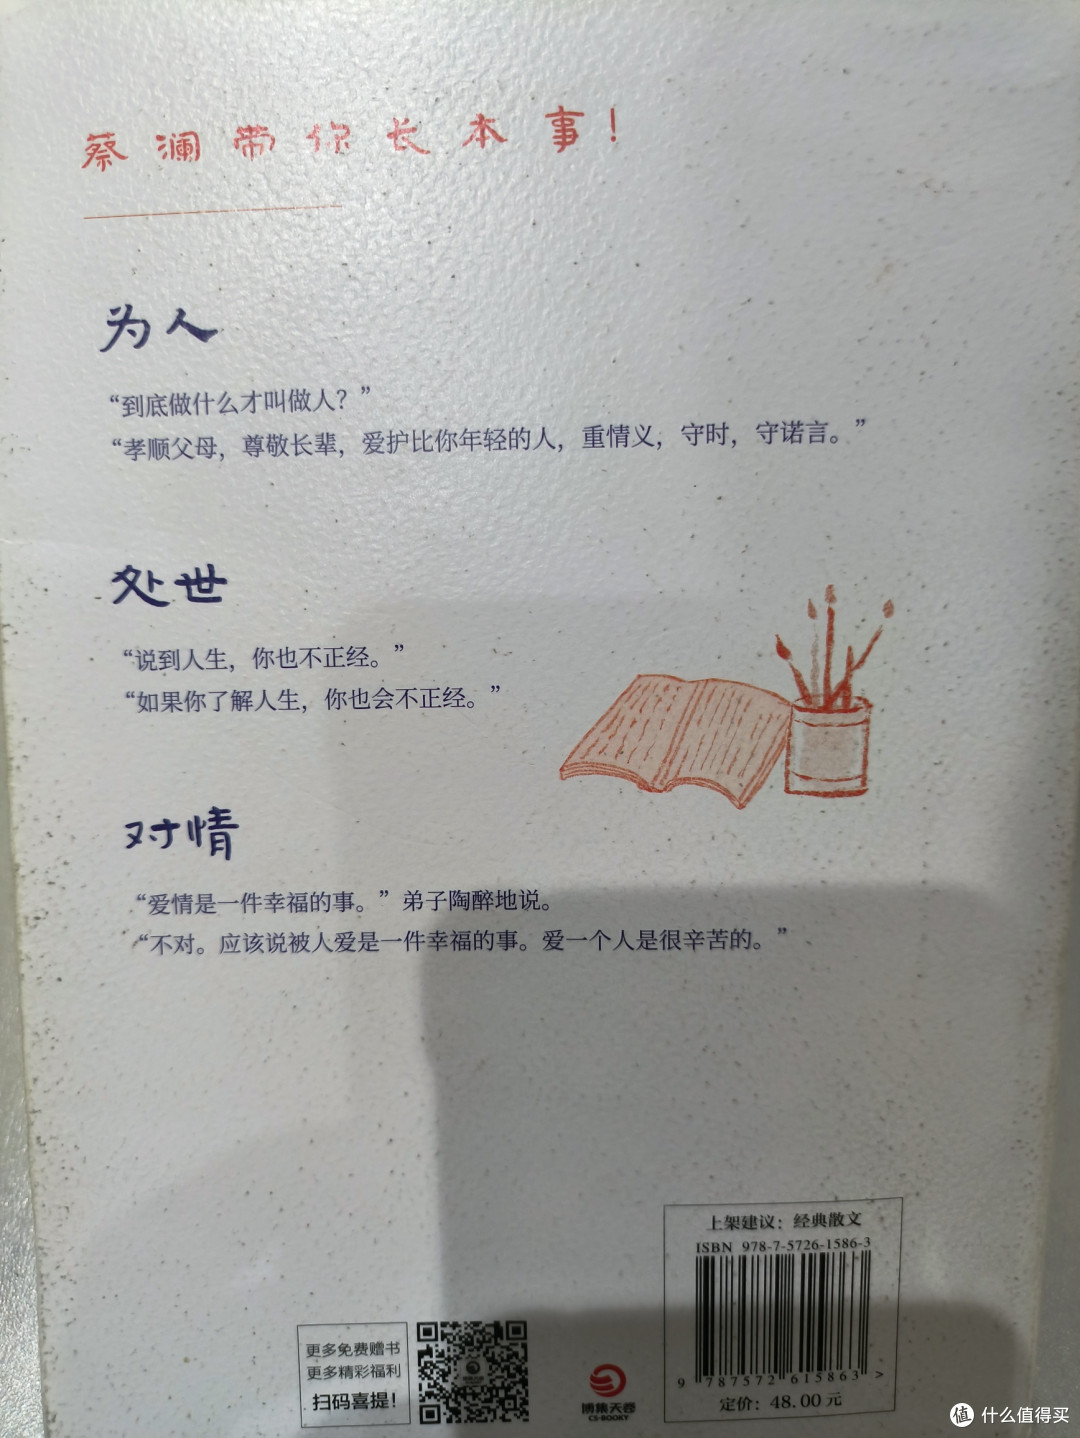 蔡澜带你长本事！
为人
“到底做什么才叫做人？”
“孝顺父母，尊敬长辈，爱护比你年轻的人，重情义，守时，守诺言。”
处世
“说到人生，你也不正经。”
“如果你了解人生，你也会不正经。”
对情
“爱情是一件幸福的事。”弟子陶醉地说。
“不对。应该说被人爱是一件幸福的事。爱一个人是很辛苦的。”
上架建议：经典散文
ISBN 978-7-5726-1586-3
9 787572 615863 >
定价：48.00 元
更多免费赠书
更多精彩福利
扫码喜提！
博集天卷
CS-BOOKY
值 什么值得买